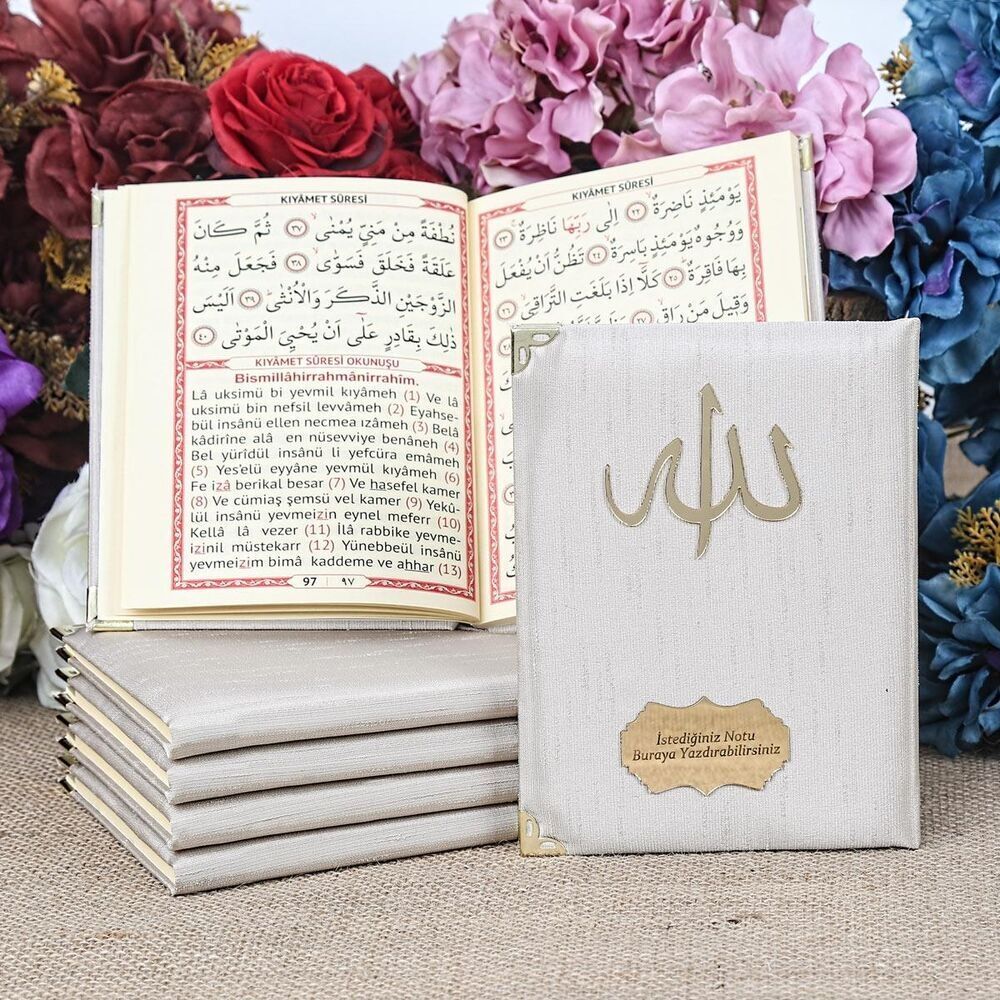 KIYÂMET SÛRESİ
نُطْفَةً مِنْ مَنِيٍّ يُمْنٰىۙ ﴿٣٧﴾ ثُمَّ كَانَ
عَلَقَةً فَخَلَقَ فَسَوّٰىۙ ﴿٣٨﴾ فَجَعَلَ مِنْهُ
الزَّوْجَيْنِ الذَّكَرَ وَالْاُنْثٰىۜ ﴿٣٩﴾ اَلَيْسَ
ذٰلِكَ بِقَادِرٍ عَلٰٓى اَنْ يُحْيِيَ الْمَوْتٰى ﴿٤٠﴾
KIYÂMET SÛRESİ OKUNUŞU
Bismillâhirrahmânirrahîm.
Lâ uksimü bi yevmil kıyâmeh (1) Ve lâ
uksimü bin nefsil levvâmeh (2) Eyahse-
bül insânü ellen necmea ızâmeh (3) Belâ
kâdirîne alâ en nüsevviye benâneh (4)
Bel yürîdül insânü li yefcüra emâmeh
(5) Yes'elü eyyâne yevmül kıyâmeh (6)
Fe izâ berikal besar (7) Ve hasefel kamer
(8) Ve cümiaş şemsü vel kamer (9) Yekû-
lül insânü yevmeizin eynel meferr (10)
Kellâ lâ vezer (11) İlâ rabbike yevme-
izinil müstekarr (12) Yünebbeül insânü
yevmeizim bimâ kaddeme ve ahhar (13)
97 | ٩٧
KIYÂMET SÛRESİ
يَوْمَئِذٍ نَاضِرَةٌۙ ﴿٢٢﴾ اِلٰى رَبِّهَا نَاظِرَةٌۚ ﴿٢٣﴾
وَوُجُوهٌ يَوْمَئِذٍ بَاسِرَةٌۙ ﴿٢٤﴾ تَظُنُّ اَنْ يُفْعَلَ
بِهَا فَاقِرَةٌۜ ﴿٢٥﴾ كَلَّٓا اِذَا بَلَغَتِ التَّرَاقِيَۙ ﴿٢٦﴾
وَق۪يلَ مَنْ رَاقٍۙ ﴿٢٧﴾
الله
İstediğiniz Notu
Buraya Yazdırabilirsiniz